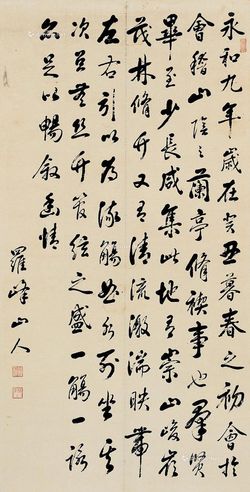 永和九年歲在癸丑暮春之初會於
會稽山陰之蘭亭脩禊事也羣賢
畢至少長咸集此地有崇山峻嶺
茂林脩竹又有清流激湍映帶
左右引以為流觴曲水列坐其
次雖無絲竹管弦之盛一觴一詠
亦足以暢敘幽情
羅峰山人